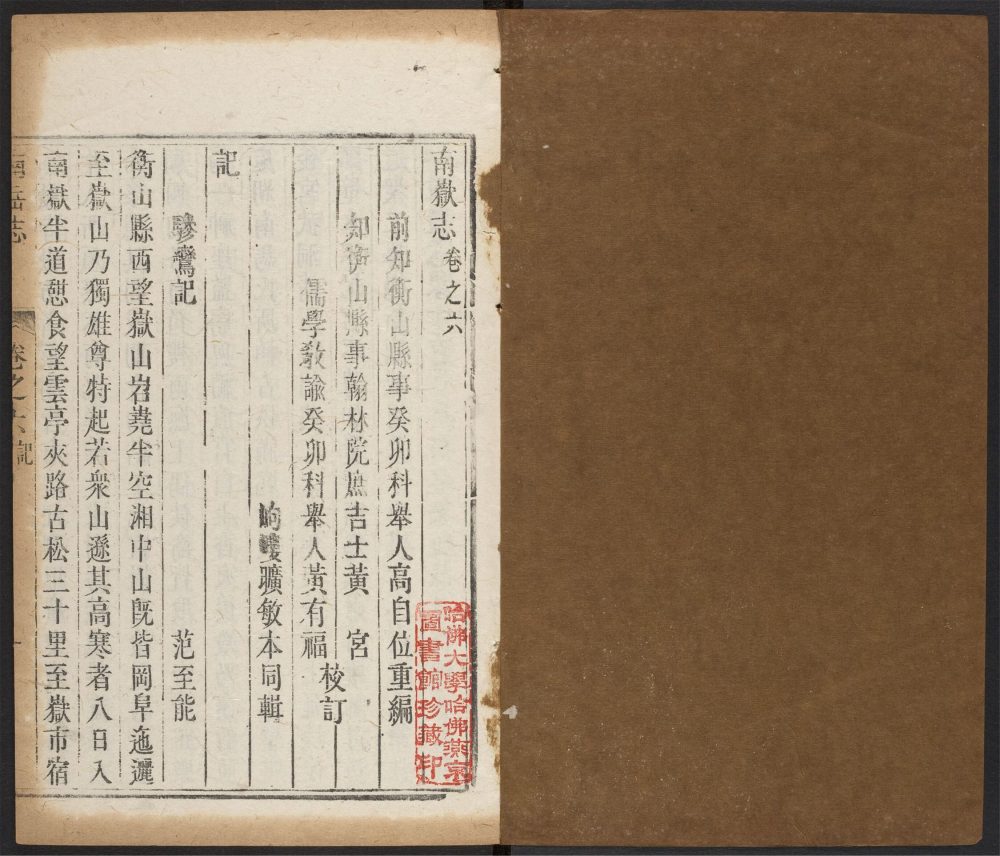 南嶽志卷之六
前知衡山縣事癸卯科舉人高自位重編
知衡山縣事翰林院庶吉士黃宮
儒學敎諭癸卯科舉人黃有福
校訂
岣嶁曠敏本同輯
記
驂鸞記
范至能
衡山縣西望嶽山岧蕘半空湘中山旣皆岡阜迤邐
至嶽山乃獨雄尊特起若衆山遜其高寒者八日入
南嶽半道憩食望雲亭夾路古松三十里至嶽市宿
南岳志
卷之六記
哈佛大學哈佛燕京
圖書館珍藏印